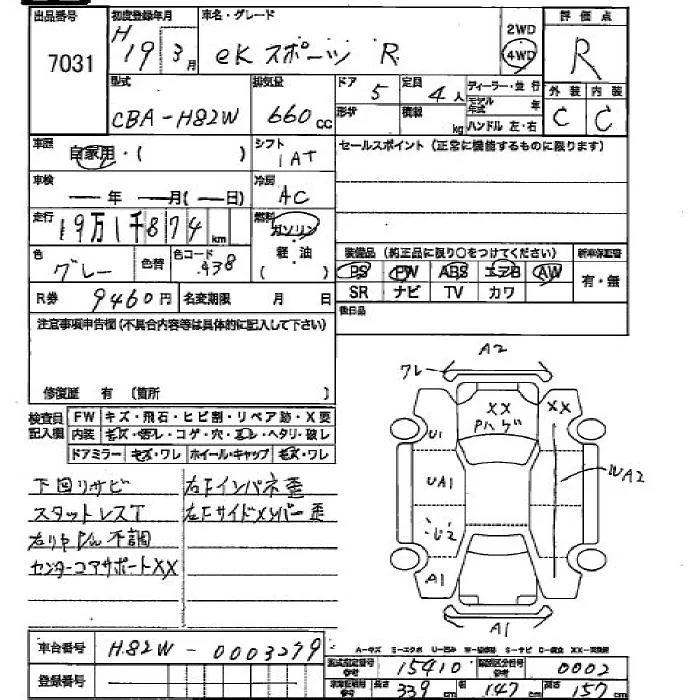 出品番号 初度登録年月 車名・グレード 評価点
7031 H19 3月 eKスポーツ R 2WD 4WD R
型式 排気量 ドア 定員 ディーラー・並行 外装 内装
CBA-H82W 660cc 5 4人 モデル年式 年 C C
形状 積載 kg ハンドル 左・右
車歴 自家用・( ) シフト 1AT セールスポイント(正常に機能するものに限ります)
車検 年 月( 日) 冷房 AC
走行 19万1千874km 燃料 ガソリン・軽油 ( )
色 グレー 色替 色コード 438
装備品(純正品に限り○をつけてください) 新車保証書
PS PW ABS エアB AW 有・無
SR ナビ TV カワ
R券 9460円 名変期限 月 日 後日品
注意事項申告欄(不具合内容等は具体的に記入して下さい)
修復歴 有 〔箇所 〕
検査員記入欄 FW キズ・飛石・ヒビ割・リペア跡・X要
内装 キズ・汚レ・コゲ・穴・ヌレ・ヘタリ・破レ
ドアミラー キズ・ワレ ホイール・キャップ キズ・ワレ
下回リサビ 右Fインパネ歪
スタットレスT 左Fサイドメンバー歪
不調
センターコアサポートXX
A2
ワレ
XX
Pハゲ
XX
U1
UA1
WA2
A1
A1
車台番号 H82W-0003279
登録番号
A-キズ E-エクボ U-凹ミ W-補修跡 S-サビ C-腐食 XX-交換済
型式指定番号 参考 15410 類別区分番号 参考 0002
参考 長さ 339cm 幅 147cm 高さ 157cm